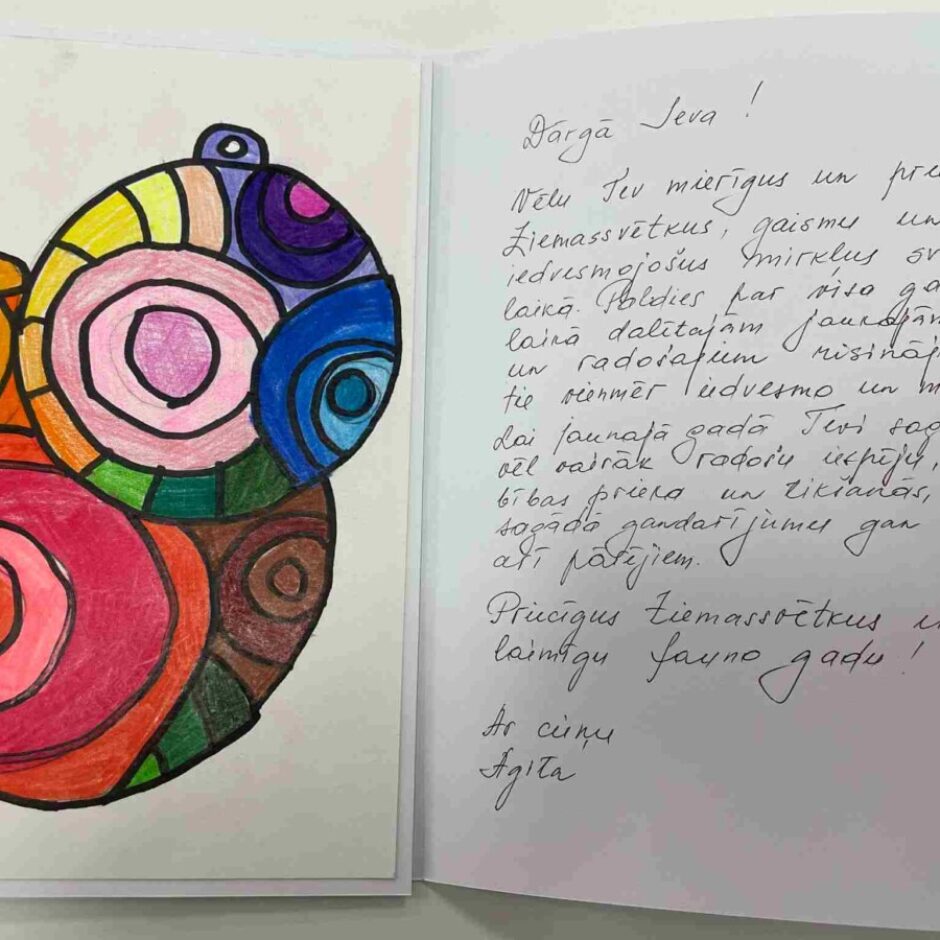 Dārgā Ieva!
Vēlu Tev mierīgus un
Ziemassvētkus, gaismu un
iedvesmojošus mirkļus
laikā. Paldies par visa
laikā dalītajām
un radošajiem
tie vienmēr iedvesmo un
Lai jaunajā gadā Tevi
vēl vairāk radošu iespēju,
bības prieka un
sagādā gandarījumu gan
arī pārējiem.
Priecīgus Ziemassvētkus
laimīgu Jauno gadu!
Ar cieņu
Agita